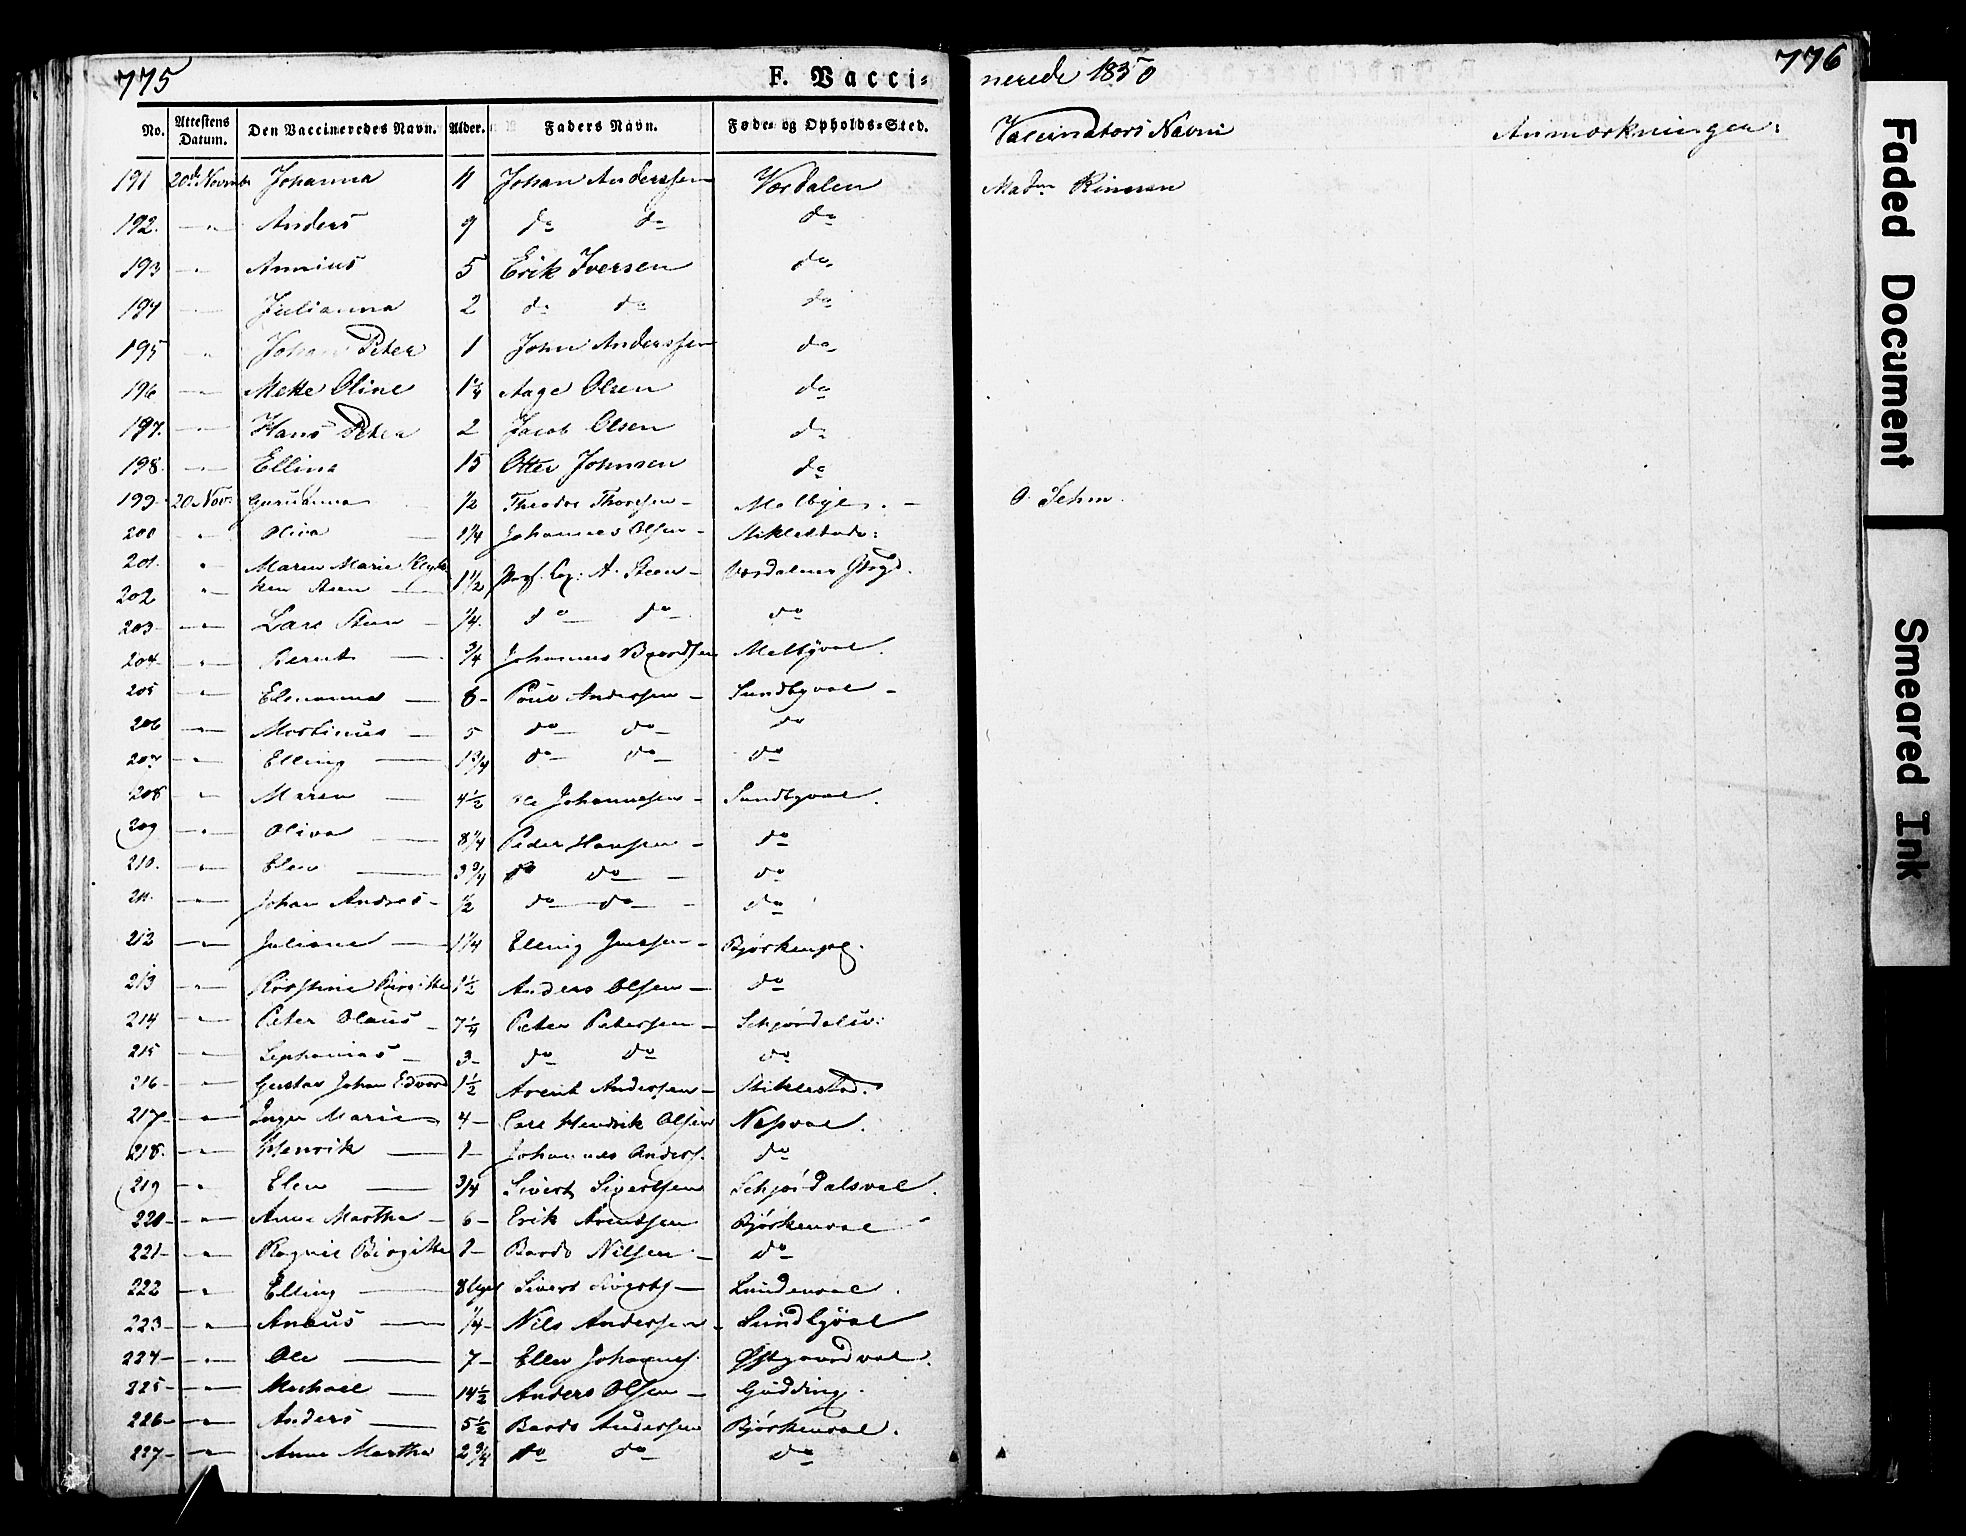 775 F. Vacci= nerede 1850 776
No. Attestens Datum. Den Vaccineredes Navn. Alder. Faders Navn. Føde- og Opholds-Sted. Vaccinators Navn Anmærkninger
191 20de Novembr Johanna 11 Johan Anderssen Værdalen Madm
192. — " Anders 9 do do do
193 — " Annius 5 Erik Iversen do
194 — Julianna 2 do do do
195 " Johan Peter 1 John Anderssen do
196 — " Mette Oline 1¼ Aage Olsen do
197. — " Hans Peter 2 Jacob Olsen do
198. — " Ellina 15 Otter Johnsen do
199 20 Nov. 1/2 Theodor Thoresen — O. Sehm
200 " Oliva 1¼ Johannes Olsen — Stiklestad
201. " Maren Marie
202 " Steen — 1½ A. Steen — Værdalens
203 — " — Lars Steen — ¼ do do do
204 — " — Bernt — ¾ Johannes Baardsen Melbyval.
205 — " — Elenanna — 6 — Poul Andersen — Sundbyval —
206 — " — Mortinus — 5 do do do
207 — " — Elling — 1¾ do do do
208 — " — Maren — 4½ Ole Johannesen — Sundbyval.
209 — " — Oliva — 8¼ Peder Hansen — do
210. — " — Elen — 3¾ do do — do
211. — " — Johan Andreas — ½ do do — do
212 — " — Juliana — 1¼ Elling Jensen — Bjørken
213 — " — Birgitta 1½ Anders Olsen — do
214 — " — Peter Olaus — 7¼ Peter Petersen — Schjørdalsv:
215 — " — Sephanias — 3 — do do do
216 — " — Gustav Johan Edvard 1½ Arent Andersen — Stiklestad.
217 — " — Inger Marie 4 — Carl Hendrik Olsen Nesval.
218. — " — Henrik — 1 — Johannes Anders. do
219 — " — Elen — ¾ Sivert Sivertsen Schjørdalsval.
220 — " — Anne Martha — 6 — Erik Arentsen Bjørkenval —
221 — " — Ragnil Birgitta Bardo Nilsen — do
222 — " — Elling — 8 Uger Sivert Siverts — Lundenval.
223 — " — Anæus — ¼ — Nils Andersen — Sundbyval
224 — " — Ole — 7 — Ellev Johannes. Østgaardval.
225 — " — Michael — 14½ Anders Olsen — Gudding.
226 — " — Anders — 5½ Bardo Andersen Bjørkenval.
227 — " — Anne Martha 2¾ do do do
Faded Document
Smeared Ink